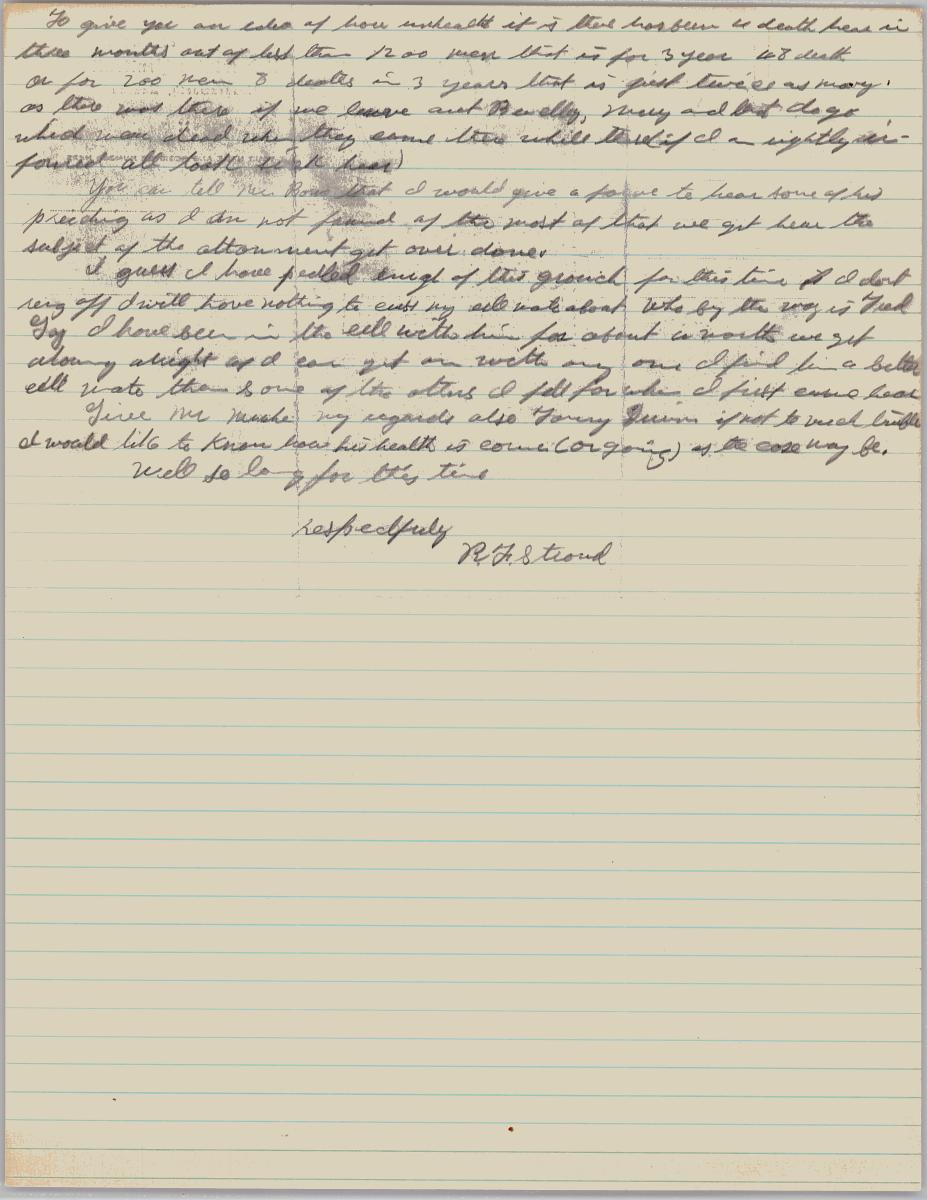 To give you an idea of how unhealth it is there has been 4 death hear in
three months out of less than 1200 men that is for 3 year 48 death
or for 200 men 8 deaths in 3 years that is just twice as many
as there was there if we leave out and dago
which were dead when they come there while these if I am rightly in-
formed all took sick hear)
You can tell Mr Ross that I would give a for to hear some of his
preching as I am not found of the most of that we get hear the
subject of the attonment get over done.
I guess I have pedled enugh of this grouch for this time if I dont
ring off I will have nothing to cuss my cell mate about who by the way is Fred
I have been in the cell with him for about a month we get
along alright as I can get on with any one I find him a better
cell mate than some of the others I fell for when I first come hear
Give Mr my regards also if not to much truble
I would like to know how his health is comin (or going) as the case may be.
Well so long for this time
respectfuly
R.F. Stroud